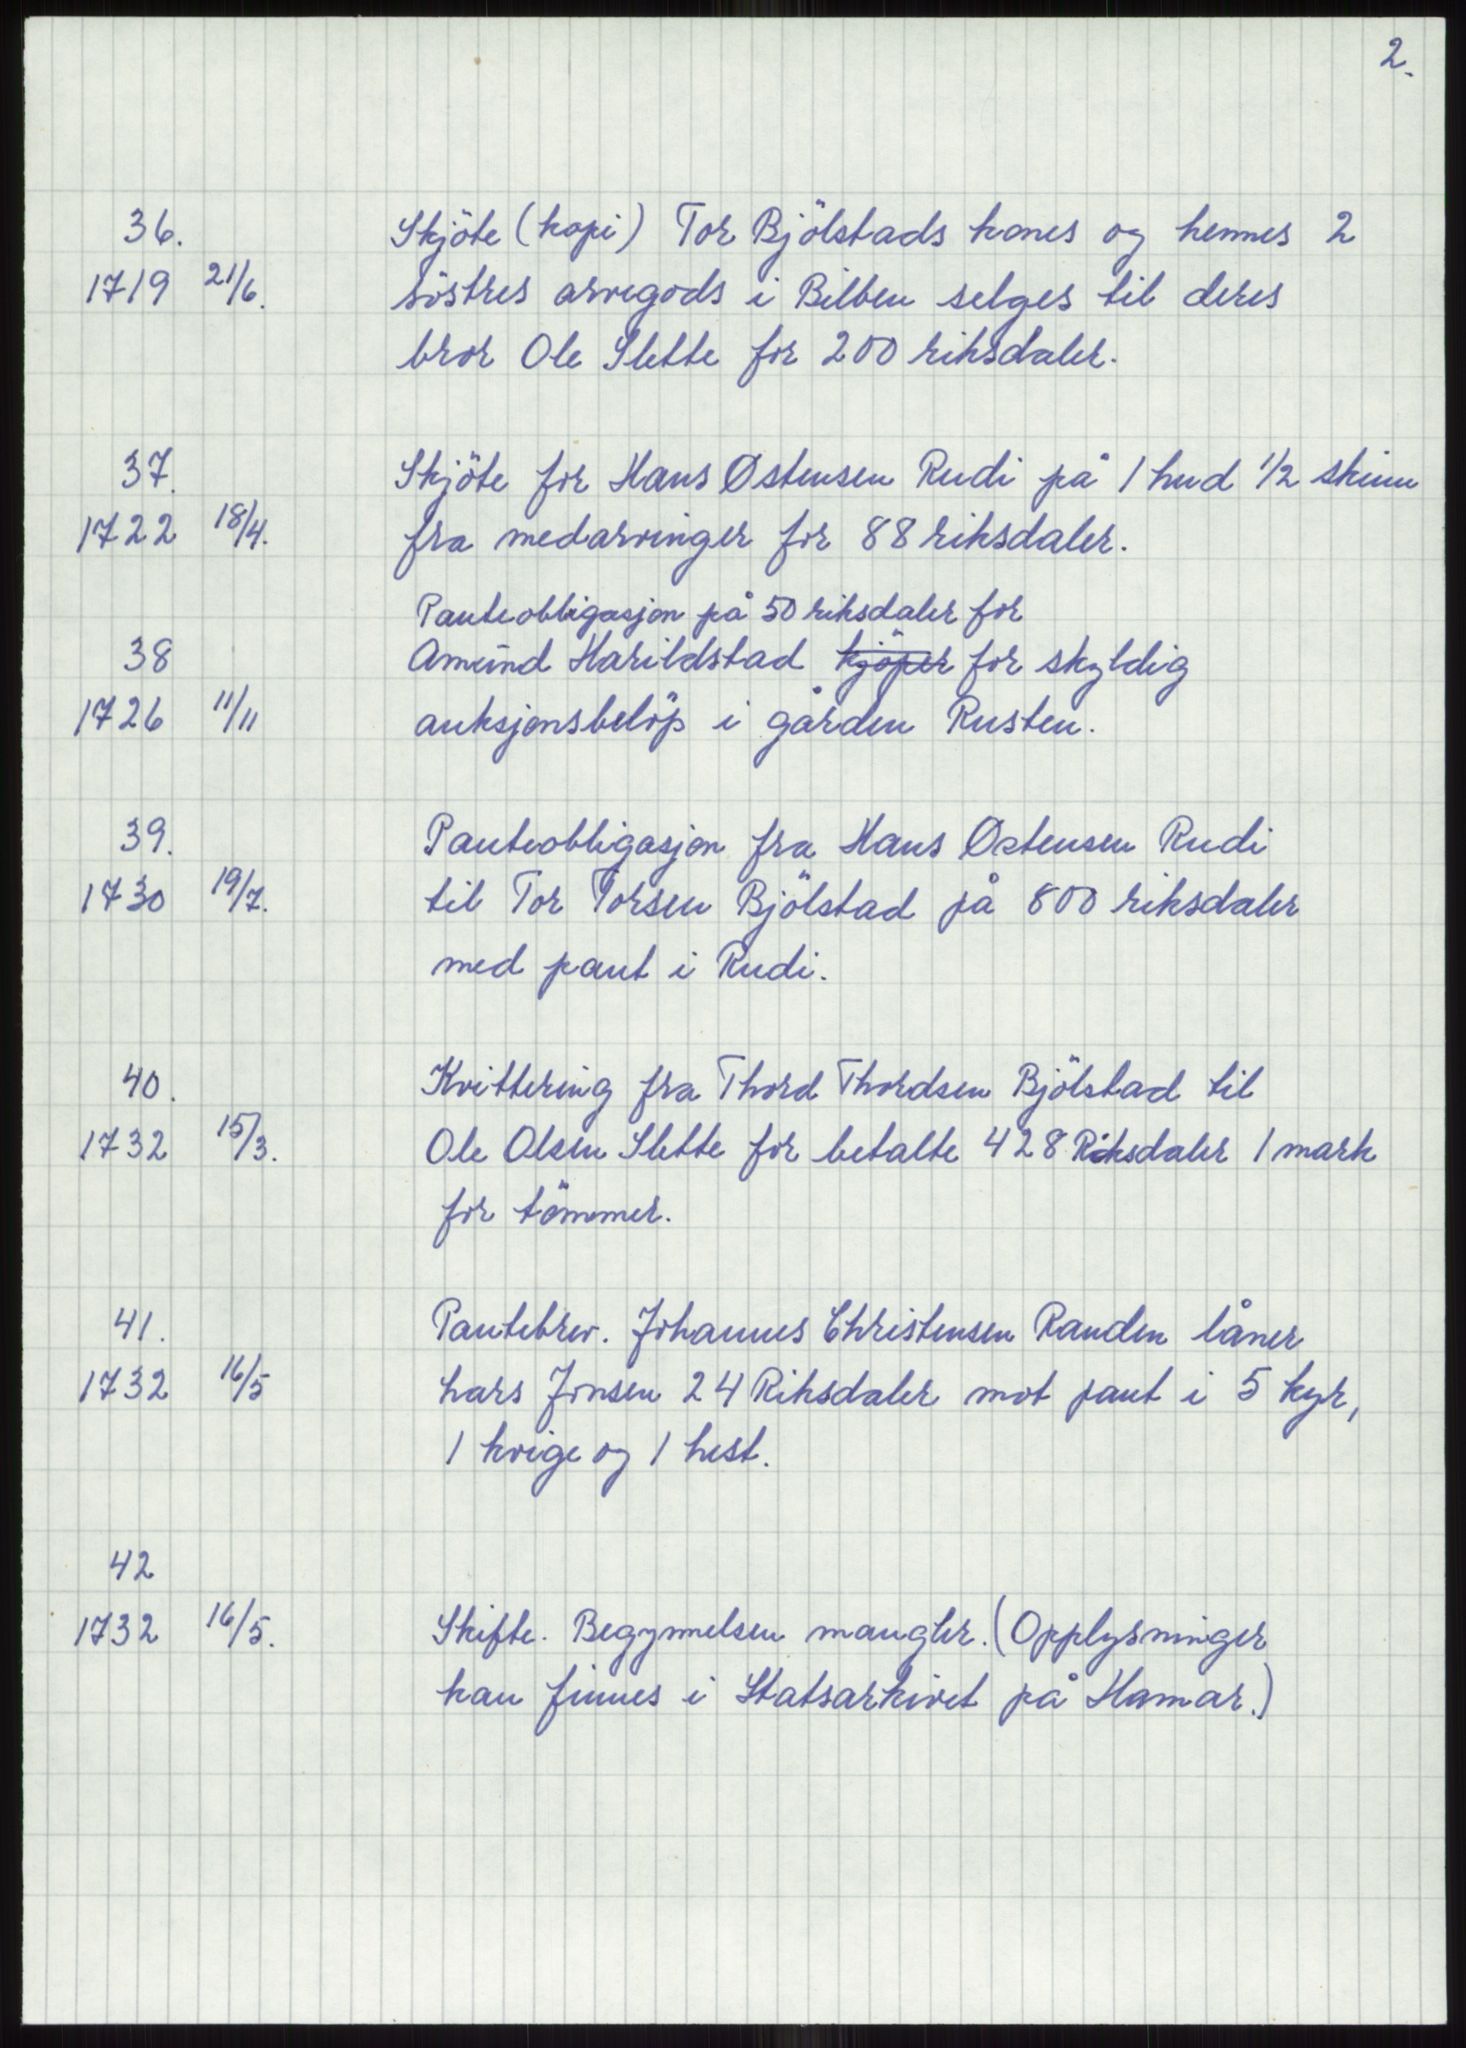 2.
36. Skjöte (kopi) Tor Bjölstads kones og hennes 2
1719 21/6. söstres arvegods i Bilben selges til deres
bror Ole Slette for 200 riksdaler.
37. Skjöte for Hans Østensen Rudi på 1 hud 1/2 skinn
1722 18/4. fra medarvinger for 88 riksdaler.
Panteobligasjon på 50 riksdaler for
38 Amund Harildstad kjöper for skyldig
1726 11/11 auksjonsbelöp i gården Rusten.
39. Panteobligasjon fra Hans Østensen Rudi
1730 19/7. til Tor Torsen Bjölstad på 800 riksdaler
med pant i Rudi.
40. Kvittering fra Thord Thordsen Bjölstad til
1732 15/3. Ole Olsen Slette for betalte 428 Riksdaler 1 mark
for tömmer.
41. Pantebrev. Johannes Christensen Randen låner
1732 16/5 Lars Jonsen 24 Riksdaler mot pant i 5 kyr,
1 kvige og 1 hest.
42
1732 16/5. Skifte. Begynnelsen mangler. (Opplysninger
kan finnes i Statsarkivet på Hamar.)